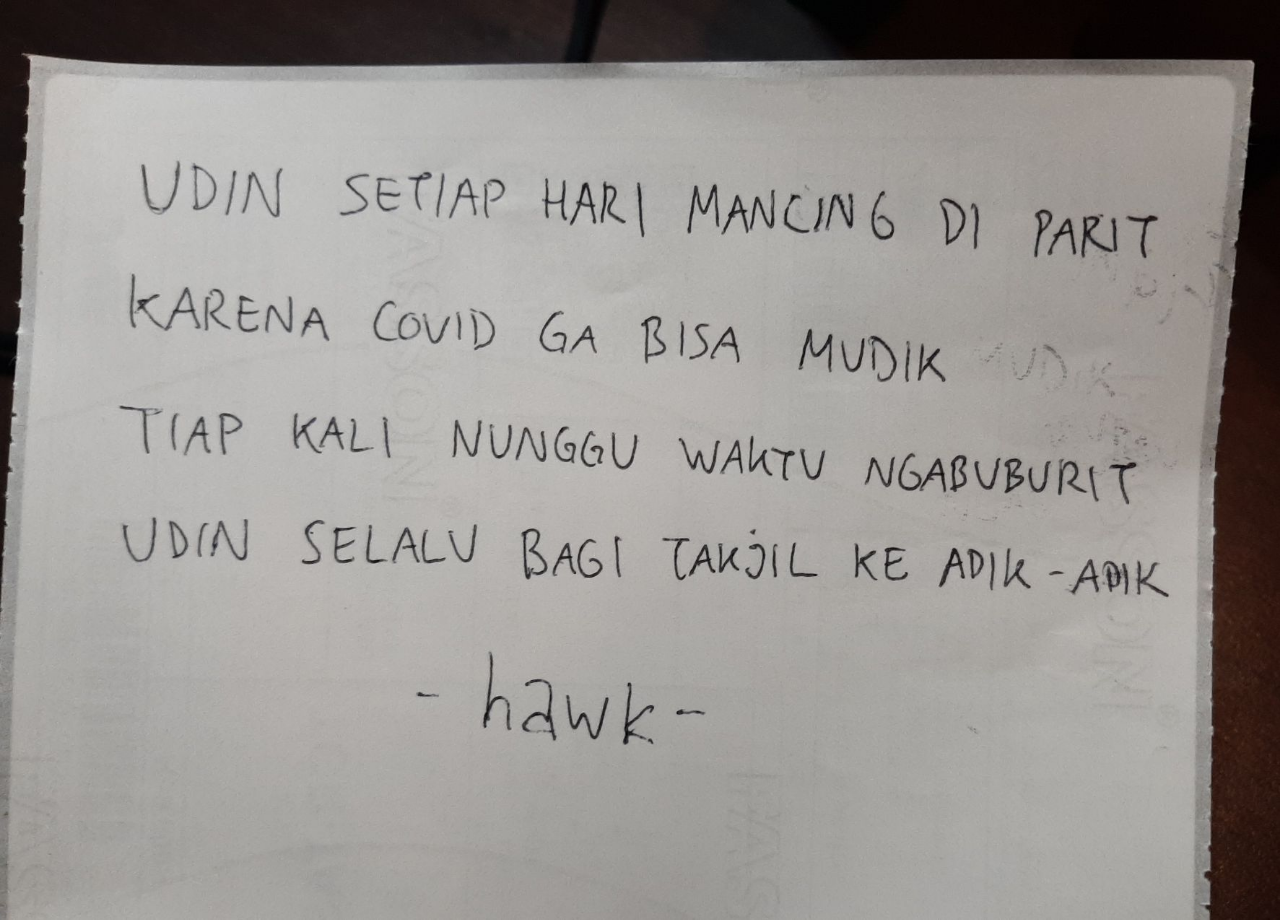 UDIN SETIAP HARI MANCING DI PARIT
KARENA COVID GA BISA MUDIK MUDIK
TIAP KALI NUNGGU WAKTU NGABUBURIT
UDIN SELALU BAGI TAKJIL KE ADIK-ADIK
- hawk -